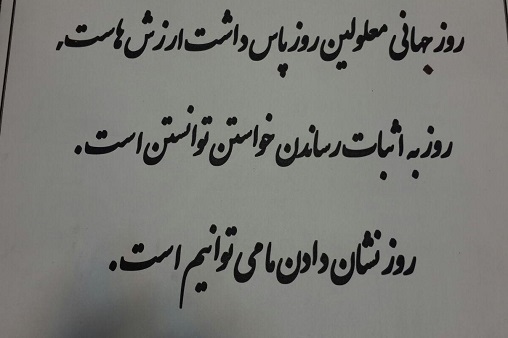 روز جهانی معلولین روز پاس داشت ارزش هاست.
روز به اثبات رساندن خواستن توانستن است.
روز نشان دادن ما می توانیم است.